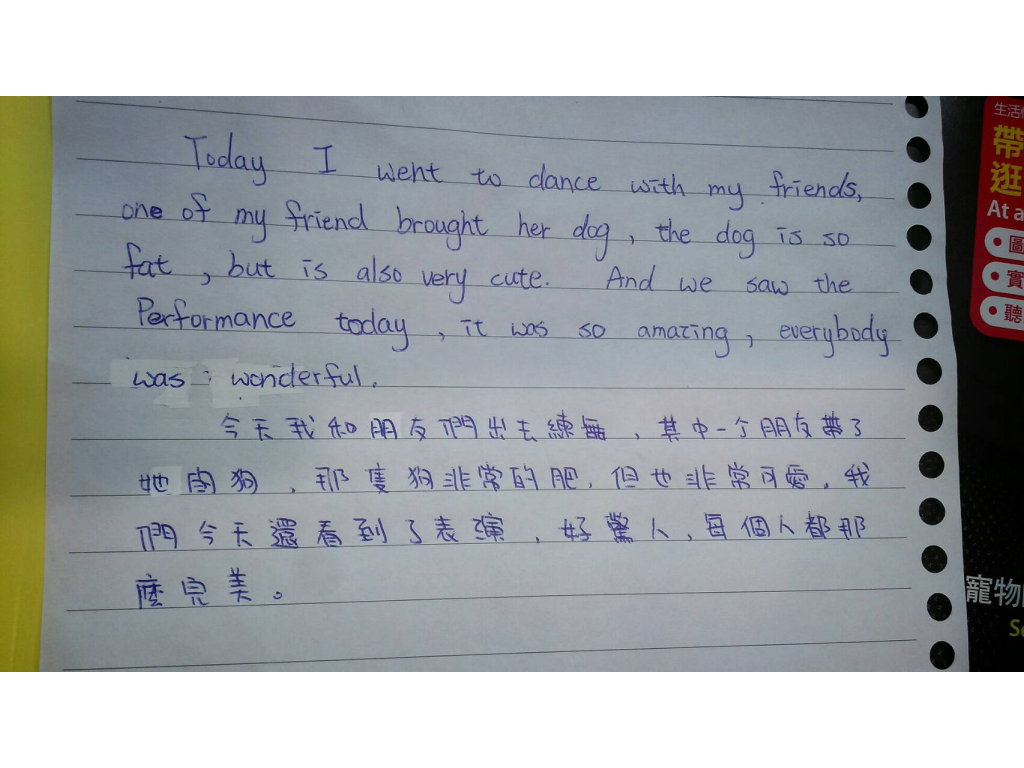 Today I went to dance with my friends,
one of my friend brought her dog, the dog is so
fat, but is also very cute. And we saw the
Performance today, it was so amazing, everybody
was wonderful.
今天我和朋友們出去練舞，其中一个朋友帶了
她的狗，那隻狗非常的肥，但也非常可愛，我
們今天還看到了表演，好驚人，每個人都那
麼完美。
生活
帶
逛
At a
圖
實
聽
寵物
S